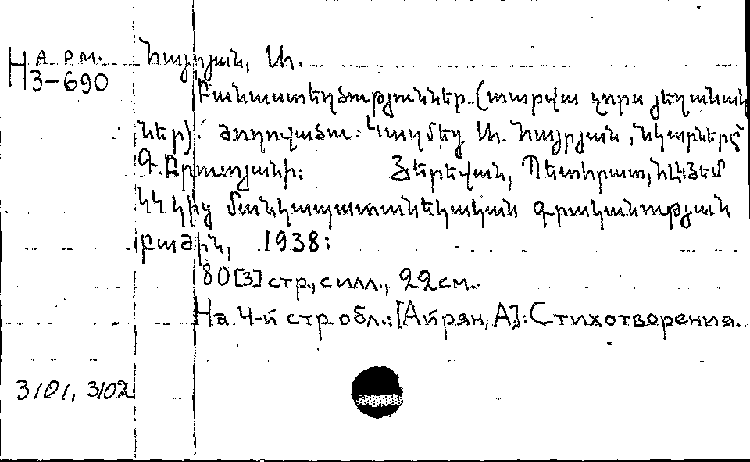 А Р М.
Н 3-690
Հայրյան, Ա.
Բանաստեղծություններ. (տարվա չորս յեղանակ
ներ). Ժողովածու: Կազմեց Ա. Հայրյան, նկարները՝
Գ. Յերևան, Պետհրատ,
ՀԿ(բ)Կ մանկապատանեկական գրականության
բաժին, 1938:
80[3] стр., с илл., 22 см.
На 4-й стр обл.: [Айрян, А]: Стихотворения.
3101, 3102